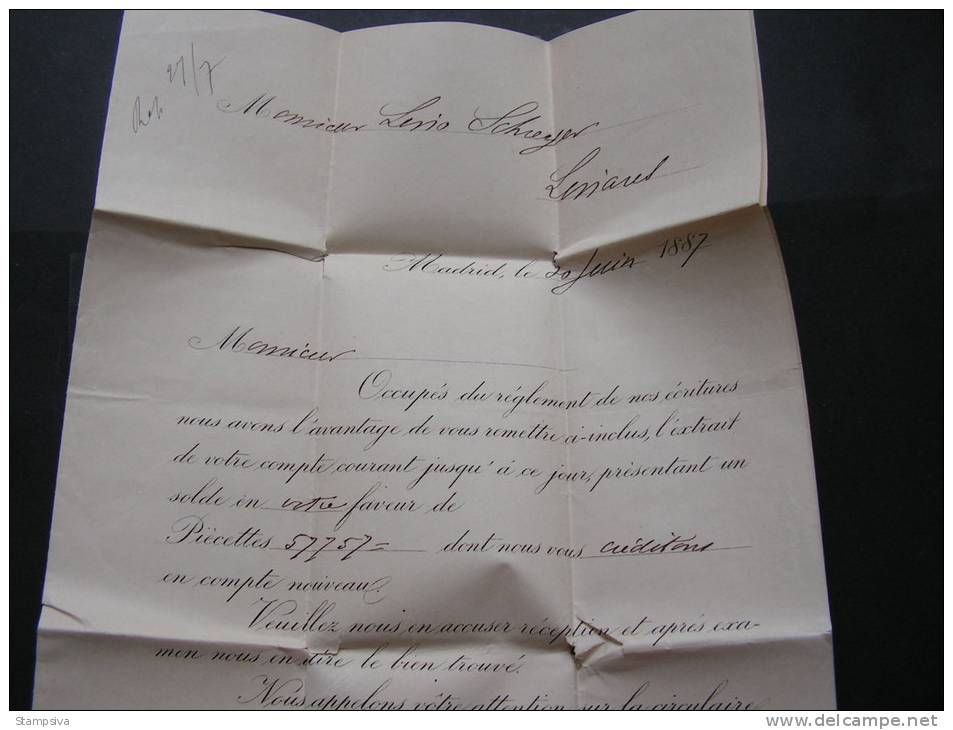 27/7
Monsieur Levio Schreyer
Linares
Madrid, le 30 Juin 1887
Monsieur
Occupés du réglement de nos écritures
nous avons l'avantage de vous remettre ci-inclus, l'extrait
de votre compte courant jusqu'á ce jour, présentant un
solde en votre faveur de
Piëcettes 577 57 = dont nous vous créditons
en compte nouveau.
Veuillez nous en accuser réception et aprés exa-
men nous en dire le bien trouvé.
Nous appelons vôtre attention sur la circulaire
Stampsiva
www.delcampe.net